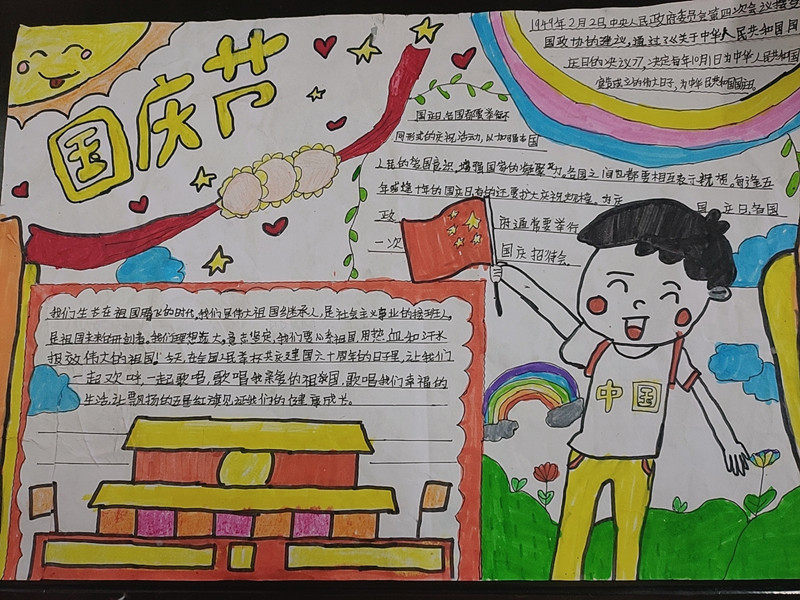 国庆节
1949年2月2日,中央人民政府委员会第四次会议接受
国政协的建议,通过了《关于中华人民共和国国
庆日的决议》,决定每年10月1日为中华人民共和国
宣告成立的伟大日子,为中华人民共和国国庆日。
国庆日,各国都要举行不
同形式的庆祝活动,以加强本国
人民的爱国意识,增强国家的凝聚力。各国之间也都要相互表示祝贺。每逢五
年或逢十年的国庆日,有的还要扩大庆祝规模。为庆
国庆日,各国
政
府通常要举行
一次
国庆招待会。
我们生长在祖国腾飞的时代,我们是伟大祖国的继承人,是社会主义事业的接班人,
是祖国未来的开创者。我们理想远大,意志坚定,我们要心系祖国,用热血和汗水
报效伟大的祖国!今天,在全国人民喜庆共庆建国六十周年的日子里,让我们
一起欢呼,一起歌唱,歌唱我亲爱的祖国,歌唱我们幸福的
生活,让飘扬的五星红旗见证我们的健康成长。
中国